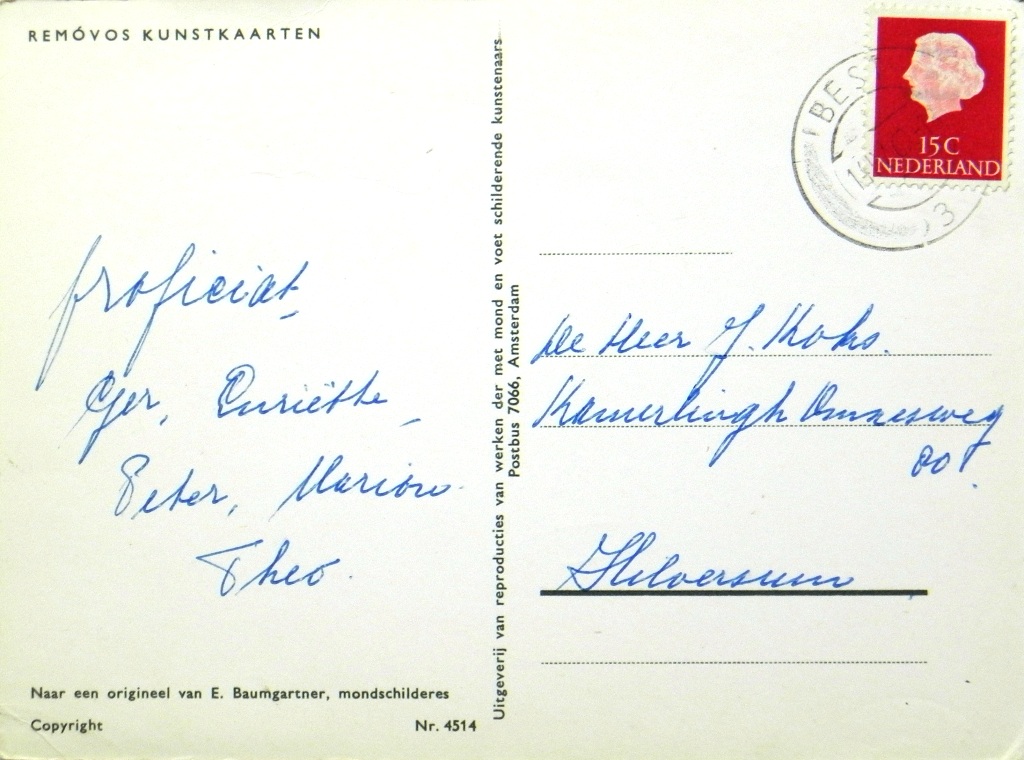 REMÓVOS KUNSTKAARTEN
proficiat,
Ger, Enriëtte,
Peter, Marion
Theo.
Naar een origineel van E. Baumgartner, mondschilderes
Copyright
Nr. 4514
Uitgeverij van reproducties van werken der met mond en voet schilderende kunstenaars
Postbus 7066, Amsterdam
BEST
3
15 C
NEDERLAND
De Heer J. Koks.
Kamerlingh Onnesweg
Hilversum